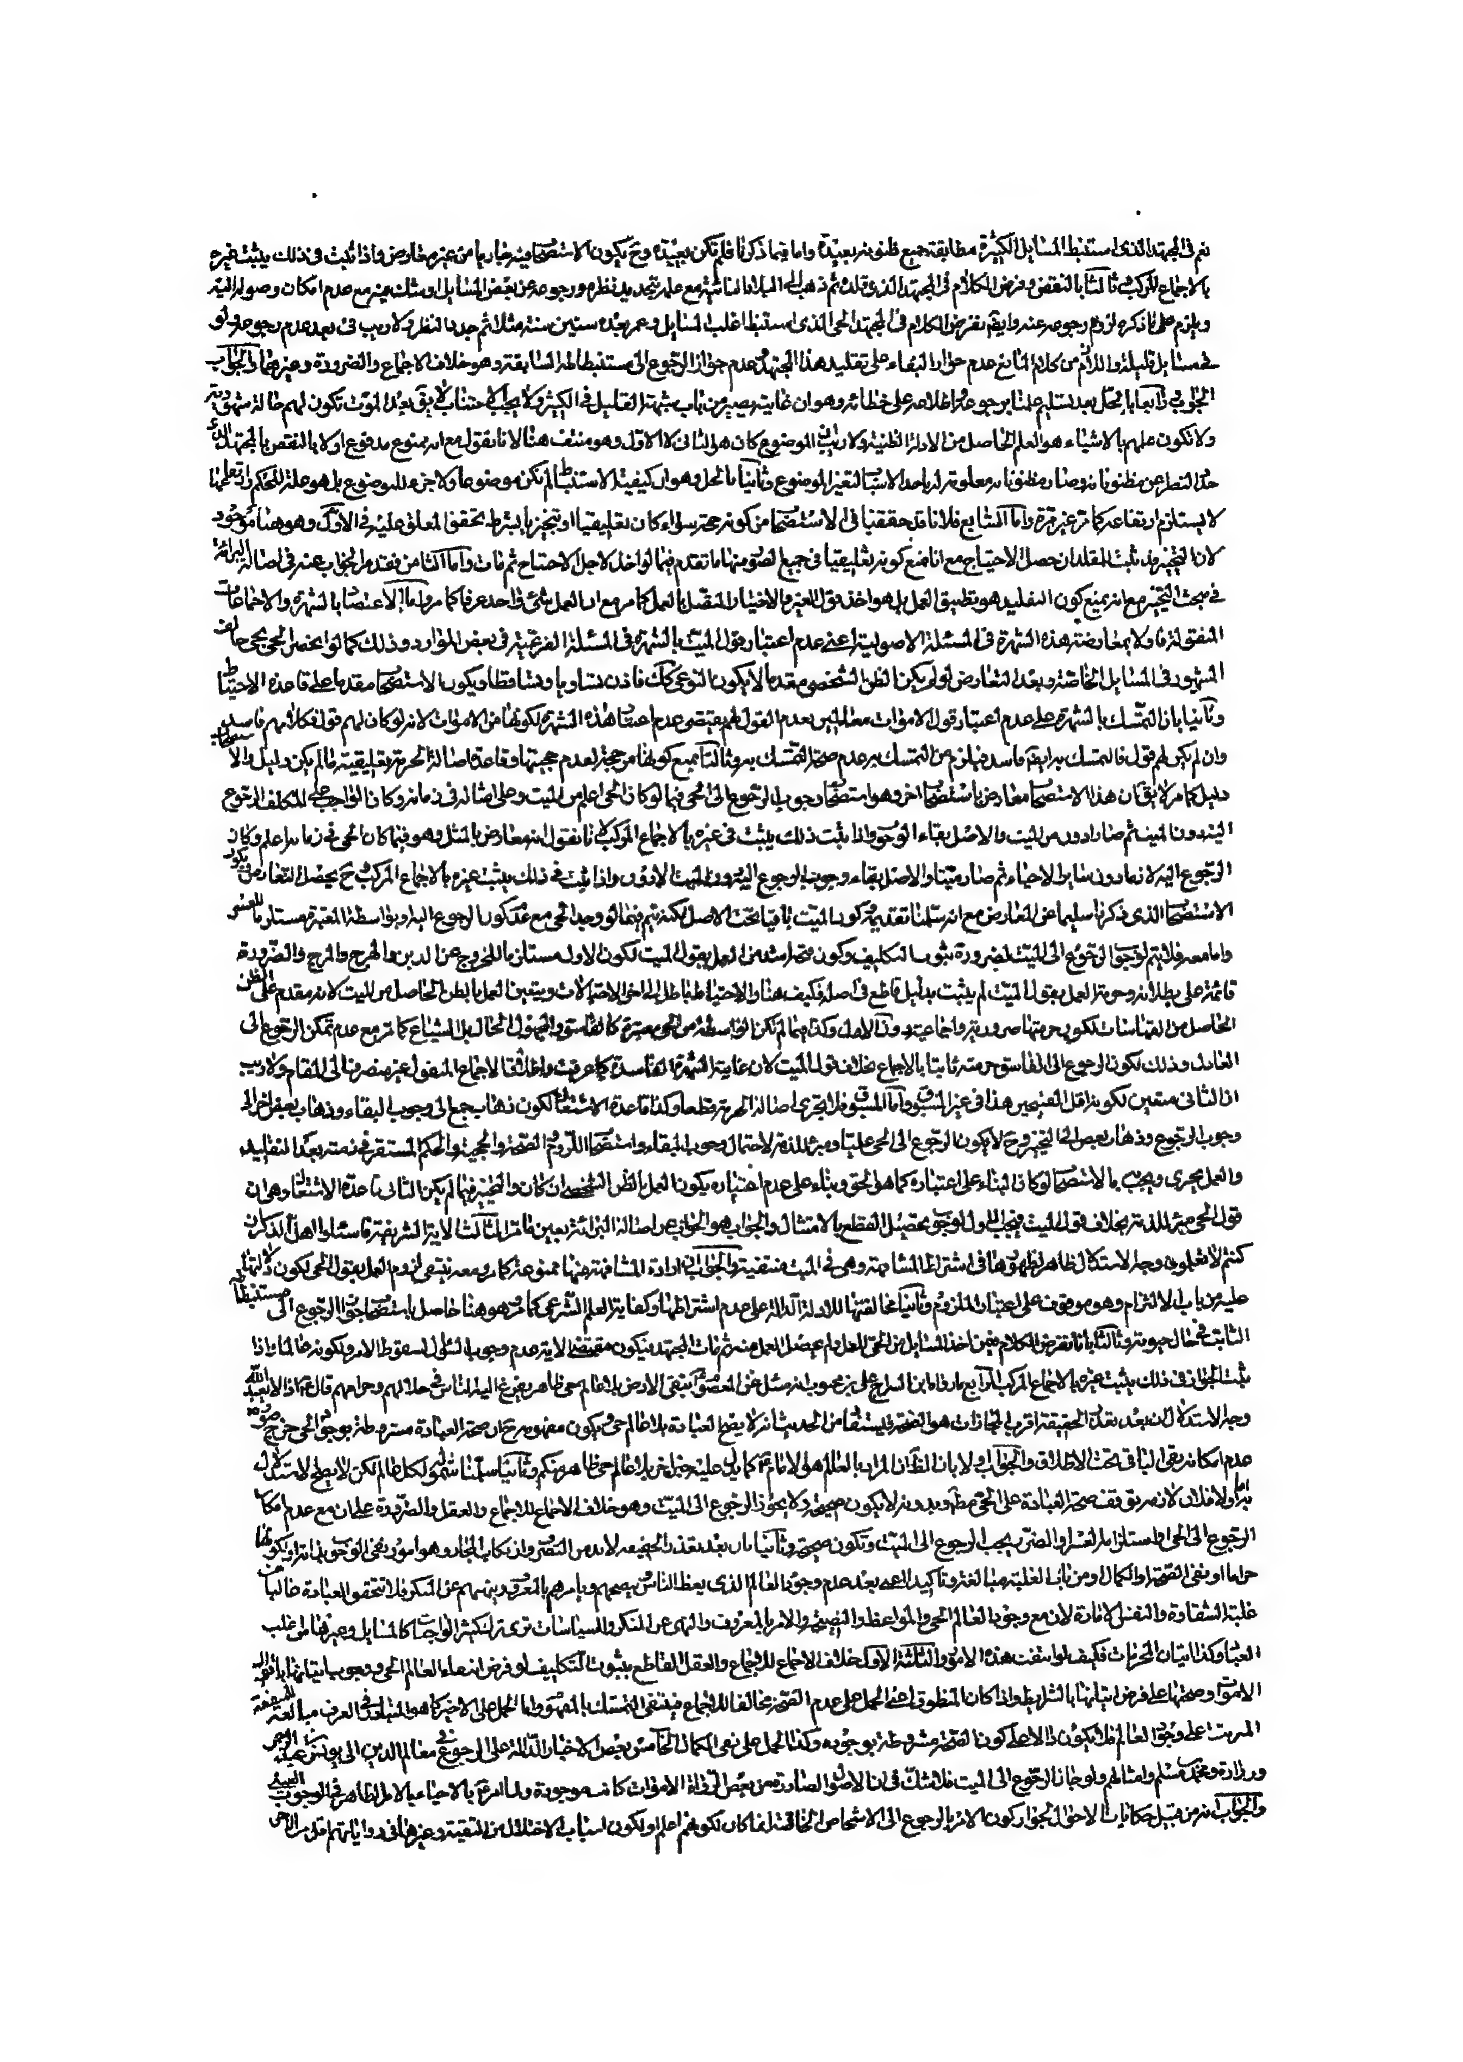 نعم فى المجتهد الذى استنبط المسايل الكثيرة مطابقة جميع ظنونه بعيدة واما فيما ذكرنا فلم تكن بعيدة وح يكون الاستصحاب فيه جاريا من غير معارض واذا ثبت فى ذلك يثبت غيره
بالاجماع المركب ثالثا بالنقض وفرض الكلام فى المجتهد الذى قلد ثم ذهب الى البلاد النائية مع علمه بتجديد نظره ورجوعه عن بعض المسايل او مثله مع عدم امكان وصوله اليه
ويلزم على ما ذكره لزوم رجوعه عنه وايضا نفرض الكلام فى المجتهد الحى الذى استنبط اغلب المسايل وعمر بعده ستين سنة مثلا ثم جدد النظر ولا ريب فى بعد عدم رجوعه ولو
فى مسايل قليلة واللازم من كلام المانع عدم جواز البقاء على تقليد هذا المجتهد وعدم جواز الرجوع الى مستنبطاته السابقة وهو خلاف الاجماع والضرورة وغيرهما والجواب
الجواب رابعا بالحل بعد تسليم علمنا برجوعه واطلاعه على خطائه وهو ان غايته يصير من باب شبهة القليل فى الكثير ولا يجب الاجتناب لا يق بعد الموت تكون لهم حالة شهودية
ولا تكون علمهم بالاشياء هو العلم الحاصل من الادلة الظنية ولا ريب ان الموضوع كان هو الثانى لا الاول وهو منتف هنا لانا نقول مع انه ممنوع مدفوع اولا بالنقض بالمجتهد الذى
لا يستلزم ارتفاعه كما مر غير مرة واما السابع فلانا قد حققنا فى الاستصحاب من كونه حجة سواء كان تعليقيا او تنجيزيا بشرط تحقق المعلق عليه فى الاول وهو هنا موجود
لان التخيير قد ثبت للمقلد ان حصل الاحتياج مع انا نمنع كونه تعليقيا فى جميع الصور منها ما تقدم فيما لو اخذ لاجل الاحتياج ثم مات واما الثامن فقد مر الجواب عنه فى اصالة البرائة
فى مبحث التخيير مع انه نمنع كون التقليد هو تطبيق العمل بل هو اخذ قول الغير والاخبار والمتصل بالعمل كما مر مع ان العمل شئ واحد عرفا كما مر واما الاعتضاد بالشهرة والاجماعات
المنقولة فاولا بمعارضة هذه الشهرة فى المسئلة الاصولية اعنى عدم اعتبار قول الميت بالشهرة فى المسئلة الفرعية فى بعض الموارد وذلك كما لو انحصر الحى بحى خالف
المشهور فى المسايل الخاصة وبعد التعارض لو لم يكن الظن الشخصى مقدما لا يكون النوعى كك فاذن تساويا وتساقطا ويكون الاستصحاب مقدما على قاعدة الاحتياط
وثانيا بان التمسك بالشهرة على عدم اعتبار قول الاموات معللين بعدم القول لهم يقتضى عدم اعتبار هذه الشهرة لكونها من الاموات لانه لو كان لهم قول فكلامهم فاسد
وان لم يكن لهم قول فالتمسك به ايضا فاسد فيلزم من التمسك به عدم صحة التمسك به وثالثا نمنع كونها من حجة لعدم حجيتها وقاعدة اصالة الحرمة تعليقية ما لم يكن دليل والا
دليل كما مر لا يق ان هذا الاستصحاب معارض باستصحاب اخر وهو استصحاب وجوب الرجوع الى الحى فيما لو كان الحى اعلم من الميت وعلى امثاله فى زمانه وكان الواجب على المكلف الرجوع
اليه دون الميت ثم صار ادون من الميت والاصل بقاء الوجوب واذا ثبت ذلك يثبت فى غيره بالاجماع المركب لانا نقول انه معارض بالمثل وهو فيما كان الحى فى زمانه اعلم وكان
الرجوع اليه لازما دون ساير الاحياء ثم صار ميتا والاصل بقاء وجوب الرجوع اليه دون الميت الادون واذا ثبت فى ذلك يثبت غيره بالاجماع المركب ح يحصل التعارض ويكون
الاستصحاب الذى ذكرنا سليما عن التعارض مع انه سلمنا تقديمه كون الميت باقيا تحت الاصل لكنه يتم فيما لو وجد الحى مع عدم كون الرجوع اليه او بواسطة المعتبرة مستلزما للعسر
واما معه فلا يتم لوجوب الرجوع الى الميت لضرورة ثبوت التكليف وكون متحاشدا من العمل بقول الميت لكون الاول مستلزما للخروج عن الدين والهرج والمرج والضرورة
قائمة على بطلانه وحرمة العمل بقول الميت لم يثبت بدليل قاطع فى اصله فكيف هنا والاحتياط باطل ساير الاحتمالات ويتعين العمل بالظن الحاصل من الميت لانه مقدم على الظن
الحاصل من القياسات لكون حرمتها ضرورية واجماعية دون الاول وكذا فيما لم تكن الواسطة من الحى معتبرة كالفاسق والمجهول الحال بل الشياع كما مر مع عدم تمكن الرجوع الى
العادل وذلك لكون الرجوع الى الفاسق حرمته ثابتا بالاجماع بخلاف قول الميت لان غايته الشهرة الفاسدة كما عرفت واطلاق الاجماع المنقول غير منصرف الى المقام ولا ريب
ان الثانى متعين لكونه اقل القبيحين هذا فى غير المسبوق واما المسبوق فلا تجرى اصالة الحرمة قطعا وكذا قاعدة الاشتغال لكون ذهاب جمع الى وجوب البقاء وذهاب بعض اخر الى
وجوب الرجوع وذهاب بعض الى التخيير وح لا يكون الرجوع الى الحى علينا ومبرئ للذمة لاحتمال وجوب البقاء واستصحاب اللزوم والصحة والحجية والحكم المستقر فى ذمته بعد التقليد
والعمل يجرى ويجب بالاستصحاب لو كان البناء على اعتباره كما هو الحق وبناء على عدم اعتباره يكون العمل بالظن الشخصى ان كان والتخيير فيما لم يكن الثانى قاعدة الاشتغال وهى ان
قول الحى مبرئ للذمة بخلاف قول الميت فيجب الاول لوجوب تحصيل القطع بالامتثال والجواب هو الجواب عن اصالة البرائة بعين ما مر الثالث الاية الشريفة فاسئلوا اهل الذكر ان
كنتم لا تعلمون وجه الاستدلال ظاهر لظهورها فى اشتراط المشافهة وهى فى الميت منتفية والجواب ان ارادة المشافهة منها ممنوعة كما مر ومعه تنتفى لزوم العمل بقول الحى لكون دلالتها
عليه من باب الالتزام وهو موقوف على اعتبار الملزوم وثانيا مخالفتها للادلة الدالة على عدم اشتراطها وكفاية العلم الشرعى كما مر وهو هنا حاصل باستصحاب جواز الرجوع الى مستنبطاته
الثابت فى حال حيوته وثالثا بانا نفرض الكلام فيمن اخذ المسايل من الحى للعمل ولم يحصل العمل منه ثم مات المجتهد فيكون مقتضى الاية عدم وجوب السئول لسقوط الامر ولكونه عالما واذا
ثبت الجواز فى ذلك يثبت غيره بالاجماع المركب الرابع ما رواه ابن السراج على بن محبوب انه سئل عن المعصوم اتبقى الارض بلا عالم حى ظاهر يفزغ اليه الناس فى حلالهم وحرامهم قال ع اذا لا يعبد الله
وجه الاستدلال ان بعد تعذر الحقيقة اقرب المجازات هو الصحة فيستفاد من الحديث انه لا يصح العبادة بلا عالم حى ويكون مفهومه ح ان صحة العبادة مشروطة بوجود الحى خرج صورة
عدم امكانه بقى الباقى تحت الاطلاق والجواب اولا بان الظاهر ان المراد بالعالم هو الامام ع كما يدل عليه خبر اخر بلا عالم حى ظاهر منكم وثانيا سلمنا شموله لكل عالم لكن لا يصح الاستدلال
به اما اولا فلان لانه يتوقف صحة العبادة على الحى مطلقا وبدونه لا يكون صحيحة ولا يجوز الرجوع الى الميت وهو خلاف الاجماع للاجماع والعقل والضرورة على ان مع عدم امكان
الرجوع الى الحى او استلزامه العسر او الضرر يجب الرجوع الى الميت وتكون صحيحة وثانيا بان بعد تعذر الحقيقة لابد من التصرف وارتكاب المجاز وهو امور نفى الوجوب ذاتا ويكون
حراما او نفى الصحة او الكمال او من باب الغلبة مبالغة وتأكيدا اعنى بعد عدم وجود العالم الذى يعظ الناس وينصحهم ويامرهم بالمعروف وينهيهم عن المنكر فلا تتحقق العبادة غالبا
غلبة الشقاوة والنفس الامارة لان مع وجود العالم الحى والمواعظ والنصيحة والامر بالمعروف والنهى عن المنكر والسياسات ترى ترك كثير الواجبات كالمسايل وغيرها من اغلب
العباد وكذا اتيان المحرمات فكيف لو انتفت هذه الامور والثلثة الاول خلاف الاجماع للاجماع والعقل القاطع بثبوت التكليف لو فرض انتفاء العالم الحى ووجوب اتيانها باقوال
الاموات وصحتها على فرض اتيانها بالشرايط واذا كان المنطوق اعنى الحمل على عدم الصحة مخالفا للاجماع فينتفى التمسك بالمفهوم واما الحمل على الاخير كما هو الشايع فى العرف مبالغة
المرتبة على وجود العالم فلا يكون دالا على كون الصحة مشروطة بوجوده وكذا الحمل على نفى الكمال الخامس بعض الاخبار الدالة على الرجوع فى معالم الدين الى يونس بن عبد الرحمن
وزرارة ومحمد بن مسلم وامثالهم ولو جاز الرجوع الى الميت فلا شك فى ان الاصول الصادرة من بعض الرواة الاموات كانت موجودة ولما امر ع بالاحياء بالامر الظاهر فى الوجوب العينى
والجواب انه من قبيل حكايات الاحوال لجواز كون الامر بالرجوع الى الاشخاص الخاصة انما كان لكونهم اعلم او لكون اسباب الاختلال من التقية وغيرها فى رواياتهم اقل من الاخرى